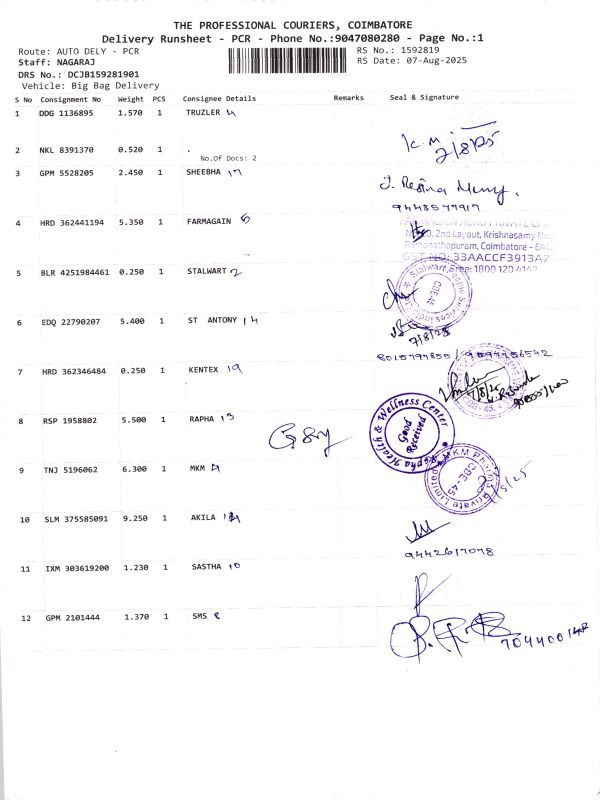 THE PROFESSIONAL COURIERS, COIMBATORE
Delivery Runsheet - PCR - Phone No.:9047080280 - Page No.:1
Route: AUTO DELY - PCR
RS No.: 1592819
Staff: NAGARAJ
RS Date: 07-Aug-2025
DRS No.: DCJB159281901
Vehicle: Big Bag Delivery
S No Consignment No Weight PCS Consignee Details Remarks Seal & Signature
1 DDG 1136895 1.570 1 TRUZLER
K.M.
7/8/25
2 NKL 8391370 0.520 1 .
No.Of Docs: 2
3 GPM 5528205 2.450 1 SHEEBHA 17
J. Regina Mary.
9448577917
4 HRD 362441194 5.350 1 FARMAGAIN 6
2nd Layout, Krishnasamy
Ramanathapuram, Coimbatore - 641
GST NO: 33AACCF3913A2
Free: 1800 120 4143
5 BLR 4251984461 0.250 1 STALWART 2
Stalwart People Services
CBE-45
6 EDQ 22790207 5.400 1 ST ANTONY 14
7/8/25
8015797855 /
7 HRD 362346484 0.250 1 KENTEX 19
7/8/25
8 RSP 1958802 5.500 1 RAPHA 13
Rapha Health & Wellness Center
Good
Received
9 TNJ 5196062 6.300 1 MKM
MKM Pharma Private Limited
CBE-45
10 SLM 375585091 9.250 1 AKILA
9442617078
11 IXM 303619200 1.230 1 SASTHA 10
12 GPM 2101444 1.370 1 SMS 8